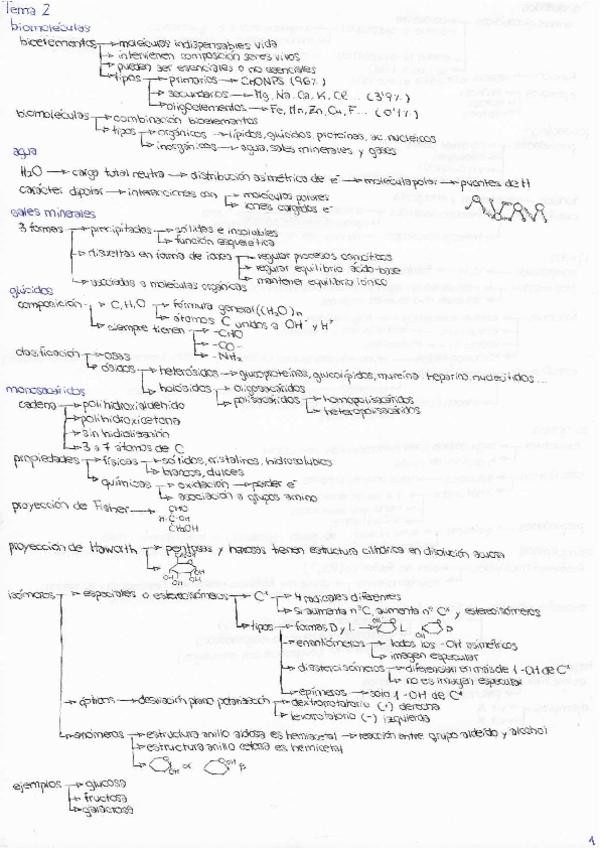 Tema 2
biomoléculas
bioelementos → moléculas indispensables vida
→ intervienen composición seres vivos
→ pueden ser esenciales o no esenciales
→ tipos → primarios → CHONPS (96%)
→ secundarios → Mg, Na, Ca, K, Cl... (3'9%)
→ oligoelementos → Fe, Mn, Zn, Cu, F... (0'1%)
biomoléculas → combinación bioelementos
→ tipos → orgánicos → lípidos, glúcidos, proteínas, ac. nucleicos
→ inorgánicos → agua, sales minerales y gases
agua
H₂O → carga total neutra → distribución asimétrica de e⁻ → molécula polar → puentes de H
carácter dipolar → interacciones con → moléculas polares
→ iones cargados e⁻
sales minerales
3 formas → precipitadas → sólidas e insolubles
→ función esquelética
→ disueltas en forma de iones → regular procesos osmóticos
→ regular equilibrio ácido-base
→ mantener equilibrio iónico
→ asociadas a moléculas orgánicas
glúcidos
composición → C, H, O → fórmula general ((H₂O)n
→ átomos C unidos a OH⁻ y H⁺
→ siempre tienen → -CHO
→ -CO-
→ -NH₂
clasificación → osas
→ ósidos → heterósidos → glucoproteínas, glucolípidos, mureína, heparina, nucleótidos...
→ holósidos → oligosacáridos
→ polisacáridos → homopolisacáridos
→ heteropolisacáridos
monosacáridos
cadena → polihidroxialdehído
→ polihidroxicetona
→ sin hidrolización
→ 3 a 7 átomos de C
propiedades → físicas → sólidos, cristalinos, hidrosolubles
→ blancos, dulces
→ químicas → oxidación → perder e⁻
→ asociación a grupos amino
proyección de Fisher → CHO
H-C-OH
CH₂OH
proyección de Haworth → pentosas y hexosas tienen estructura cilíndrica en disolución acuosa
isómeros → espaciales o estereoisómeros → C* → 4 radicales diferentes
→ si aumenta nºC, aumenta nº C* y estereoisómeros
→ tipos → formas D y L → L D
→ enantiómeros → todos los -OH asimétricos
→ imagen especular
→ diastereoisómeros → diferencian en más de 1 -OH de C*
→ no es imagen especular
→ epímeros → solo 1 -OH de C*
→ ópticos → desviación plano polarización → dextrorrotatorio (+) derecha
→ levorrotatorio (-) izquierda
→ anómeros → estructura anillo aldosa es hemiacetal → reacción entre grupo aldeído y alcohol
→ estructura anillo cetosa es hemicetal
→ OH α OH β
ejemplos → glucosa
→ fructosa
→ galactosa
1